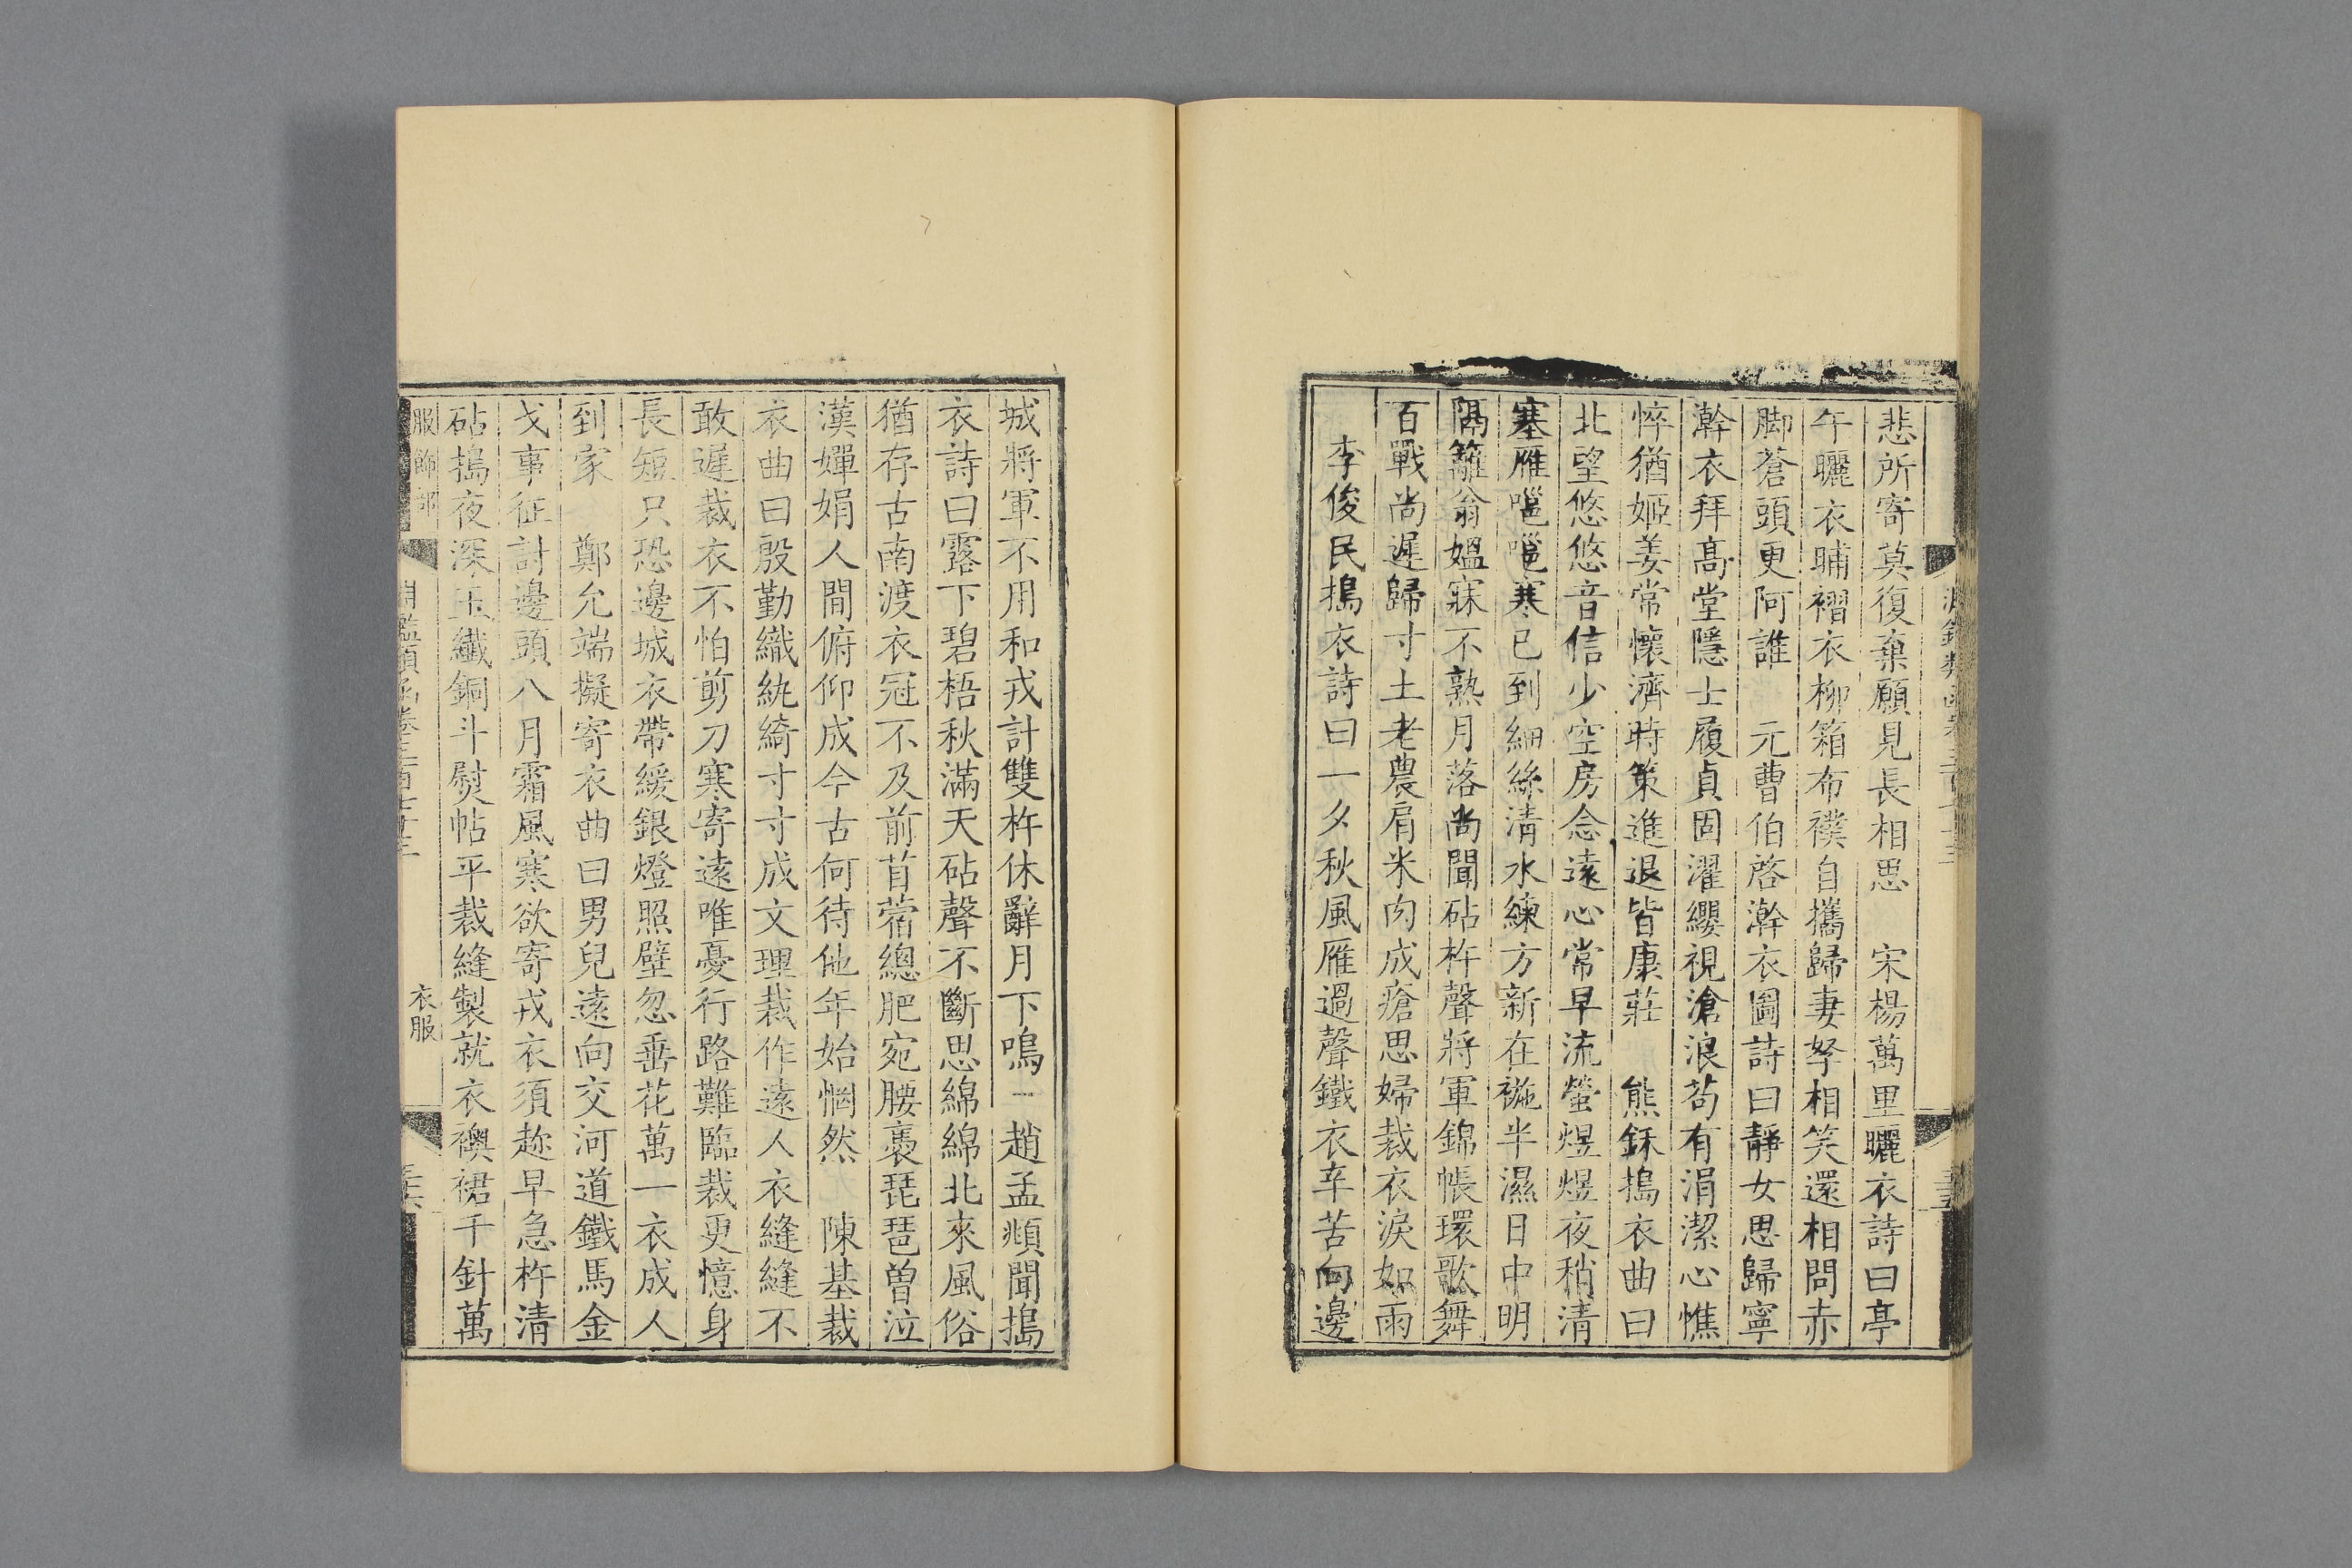 悲所寄莫復棄願見長相思　宋楊萬里曬衣詩曰亭
午曬衣晡褶衣柳箱布襆自攜歸妻孥相笑還相問赤
脚蒼頭更阿誰　元曹伯啓澣衣圖詩曰靜女思歸寧
澣衣拜高堂隱士履貞固濯纓視滄浪苟有涓潔心憔
悴猶姬姜常懷濟時策進退皆康莊　熊鉌搗衣曲曰
北望悠悠音信少空房念遠心常早流螢煜煜夜稍清
塞雁嗈嗈寒已到細絲清水練方新在椸半濕日中明
隔籬翁媼寐不熟月落尚聞砧杵聲將軍錦帳環歌舞
百戰尚遲歸寸土老農肩米肉成瘡思婦裁衣淚如雨
李俊民搗衣詩曰一夕秋風雁過聲鐵衣辛苦向邊
城將軍不用和戎計雙杵休辭月下鳴　趙孟頫聞搗
衣詩曰露下碧梧秋滿天砧聲不斷思綿綿北來風俗
猶存古南渡衣冠不及前苜蓿總肥宛腰褭琵琶曽泣
漢嬋娟人間俯仰成今古何待他年始惘然　陳基裁
衣曲曰殷勤織紈綺寸寸成文理裁作遠人衣縫縫不
敢遲裁衣不怕剪刀寒寄遠唯憂行路難臨裁更憶身
長短只恐邊城衣帶緩銀燈照壁忽垂花萬一衣成人
到家　鄭允端擬寄衣曲曰男兒遠向交河道鐵馬金
戈事征討邊頭八月霜風寒欲寄戎衣須趂早急杵清
砧搗夜深玉纖銅斗熨帖平裁縫製就衣襖裙千針萬
服飾部
淵鑑類函卷三百七十三
衣服
三六